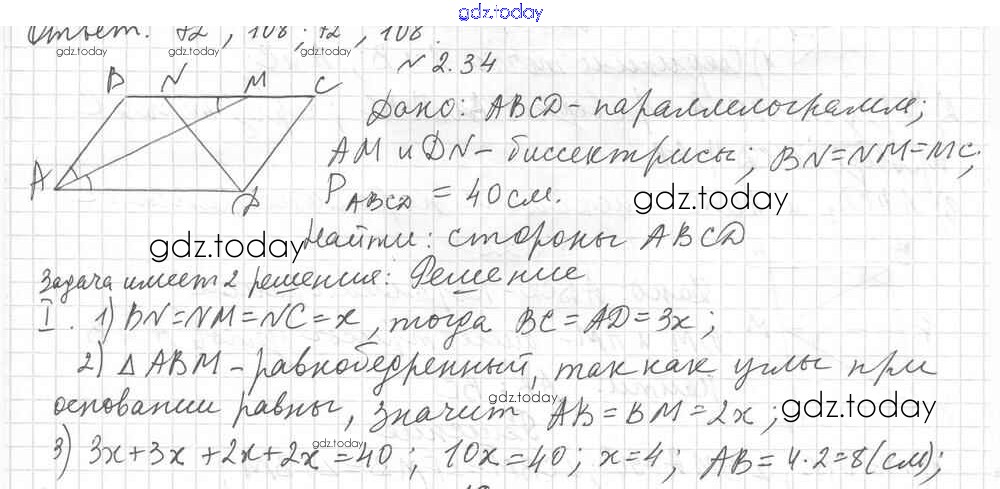 gdz.today
Ответ: 72, 108; 72, 108.
gdz.today gdz.today gdz.today
N 2.34
B N M C
Дано: ABCD - параллелограмм;
AM и DN - биссектрисы; BN=NM=MC;
A D
P ABCD = 40 см. gdz.today
gdz.today
Найти: стороны ABCD
Задача имеет 2 решения: Решение
I. 1) BN=NM=NC=x, тогда BC=AD=3x;
gdz.today gdz.today gdz.today
2) △ABM - равнобедренный, так как углы при
основании равны, значит AB=BM=2x; gdz.today
gdz.today gdz.today
3) 3x+3x+2x+2x=40; 10x=40; x=4; AB=4·2=8(см);